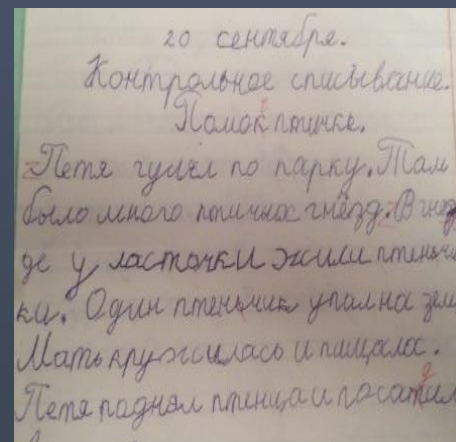 20 сентября.
Контрольное списывание.
Помок птичке.
Петя гулял по парку. Там
было много птичнос гнёзд. В гнёз
де у ласточки жили птенчи
ки. Один птеньчик упал на зем
Мать кружилась и пищала.
Петя поднял птенца и посатил